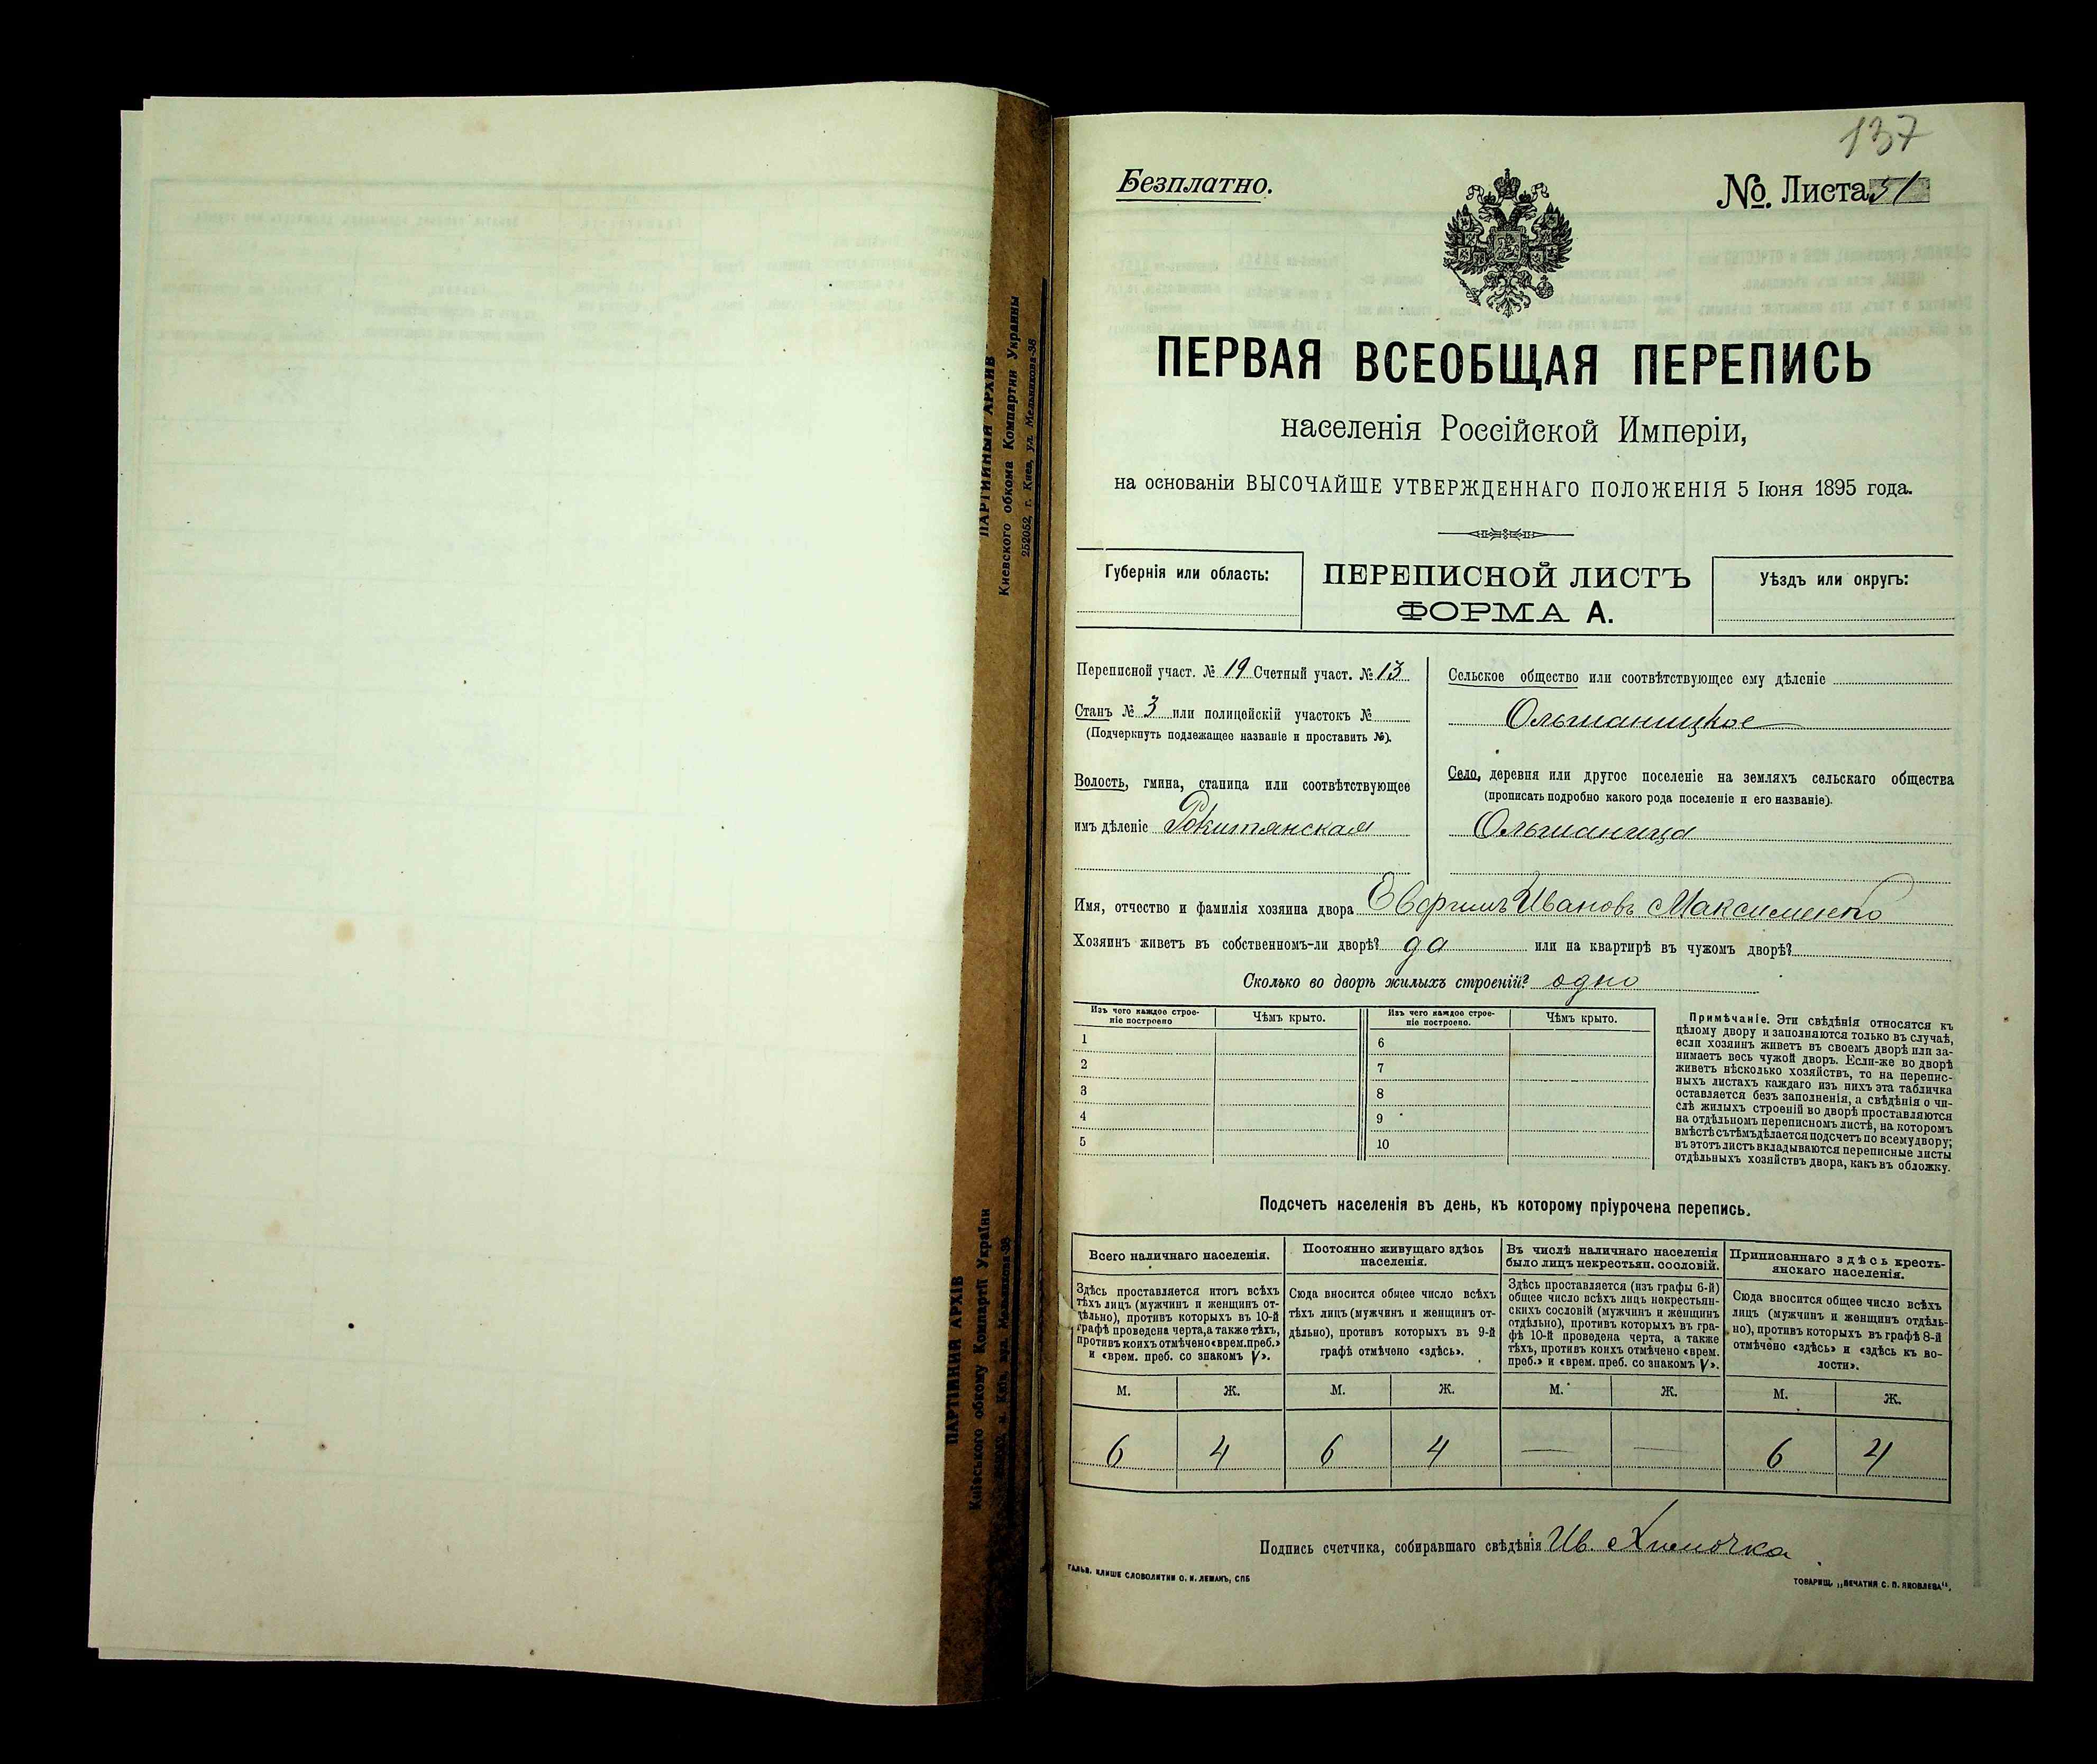 137
Безплатно.
№. Листа 51
ПЕРВАЯ ВСЕОБЩАЯ ПЕРЕПИСЬ
населенія Россійской Имперіи,
на основаніи ВЫСОЧАЙШЕ УТВЕРЖДЕННАГО ПОЛОЖЕНІЯ 5 Іюня 1895 года.
Губернія или область:
ПЕРЕПИСНОЙ ЛИСТЪ
ФОРМА А.
Уѣздъ или округъ:
Переписной участ. № 19 Счетный участ. № 13
Станъ № 3 или полицейскій участокъ №
(Подчеркнуть подлежащее названіе и проставить №).
Волость, гмина, станица или соотвѣтствующее
имъ дѣленіе Рокитянская
Сельское общество или соотвѣтствующее ему дѣленіе
Ольшаницкое
Село, деревня или другое поселеніе на земляхъ сельскаго общества
(прописать подробно какого рода поселеніе и его названіе).
Ольшаница
Имя, отчество и фамилія хозяина двора Ивановъ Максименко
Хозяинъ живетъ въ собственномъ-ли дворѣ? да или на квартирѣ въ чужомъ дворѣ?
Сколько во дворѣ жилыхъ строеній? одно
Изъ чего каждое строе-
ніе построено
Чѣмъ крыто.
Изъ чего каждое строе-
ніе построено.
Чѣмъ крыто.
1
6
2
7
3
8
4
9
5
10
Примѣчаніе. Эти свѣдѣнія относятся къ
цѣлому двору и заполняются только въ случаѣ,
если хозяинъ живетъ въ своемъ дворѣ или за-
нимаетъ весь чужой дворъ. Если-же во дворѣ
живетъ нѣсколько хозяйствъ, то на перепис-
ныхъ листахъ каждаго изъ нихъ эта табличка
оставляется безъ заполненія, а свѣдѣнія о чи-
слѣ жилыхъ строеній во дворѣ проставляются
на отдѣльномъ переписномъ листѣ, на которомъ
вмѣстѣ съ тѣмъ дѣлается подсчетъ по всему двору;
въ этотъ листъ вкладываются переписные листы
отдѣльныхъ хозяйствъ двора, какъ въ обложку.
Подсчетъ населенія въ день, къ которому пріурочена перепись.
Всего наличнаго населенія.
Здѣсь проставляется итогъ всѣхъ
тѣхъ лицъ (мужчинъ и женщинъ от-
дѣльно), противъ которыхъ въ 10-й
графѣ проведена черта, а также тѣхъ,
противъ коихъ отмѣчено «врем. преб.»
и «врем. преб. со знакомъ V».
Постоянно живущаго здѣсь
населенія.
Сюда вносится общее число всѣхъ
тѣхъ лицъ (мужчинъ и женщинъ от-
дѣльно), противъ которыхъ въ 9-й
графѣ отмѣчено «здѣсь».
Въ числѣ наличнаго населенія
было лицъ некрестьян. сословій.
Здѣсь проставляется (изъ графы 6-й)
общее число всѣхъ лицъ некрестьян-
скихъ сословій (мужчинъ и женщинъ
отдѣльно), противъ которыхъ въ гра-
фѣ 10-й проведена черта, а также
тѣхъ, противъ коихъ отмѣчено «врем.
преб.» и «врем. преб. со знакомъ V».
Приписаннаго здѣсь кресть-
янскаго населенія.
Сюда вносится общее число всѣхъ
лицъ (мужчинъ и женщинъ отдѣль-
но), противъ которыхъ въ графѣ 8-й
отмѣчено «здѣсь» и «здѣсь къ во-
лости».
М. Ж. М. Ж. М. Ж. М. Ж.
6 4 6 4 — — 6 4
Подпись счетчика, собиравшаго свѣдѣнія Ив. Химочка
ГАЛЬВ. КЛИШЕ СЛОВОЛИТНИ О. И. ЛЕМАНЪ, СПБ
ТОВАРИЩ. „ПЕЧАТНЯ С. П. ЯКОВЛЕВА“.
ПАРТИЙНЫЙ АРХИВ
Киевского обкома Компартии Украины
252052, г. Киев, ул. Мельникова-36
ПАРТІЙНИЙ АРХІВ
Київського обкому Компартії України